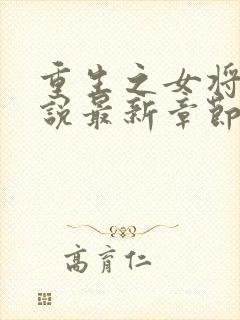 重生之女将
說最新章節
高育仁